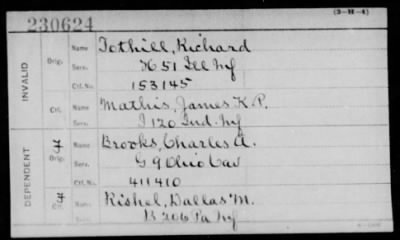 (3-M-4)
230624
INVALID
Orig. Name Tothill, Richard
Serv. H 51 Ill Inf
Ctf. No. 153145
Ctf. Name Mathis, James K. P.
I 120 Ind. Inf
DEPENDENT
F Orig. Name Brooks, Charles A.
Serv. G 9 Ohio Cav
Ctf. No. 411410
F Name Rishel, Dallas M.
B 206 Pa Inf